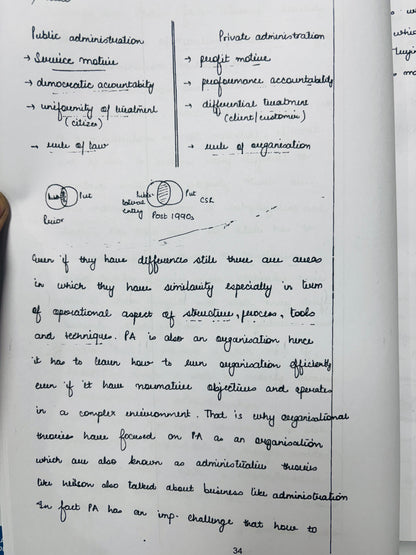 Public administration
Private administration
→ Service motive
→ profit motive
→ democratic acountability
→ performance accountability
→ uniformity of treatment
(citizen)
→ differential treatment
(client/customer)
→ rule of law
→ rule of organisation
Put
Put
CSR
lateral
entry
Post 1990s
Even if they have differences still there are areas
in which they have similarity especially in term
of operational aspect of structure, process, tools
and technique. PA is also an organisation hence
it has to learn how to run organisation efficiently
even if it have normative objectives and operates
in a complex environment. That is why organisational
theories have focused on PA as an organisation
which are also known as administrative theories
like Wilson also talked about business like administration
In fact PA has an imp. challenge that how to
34